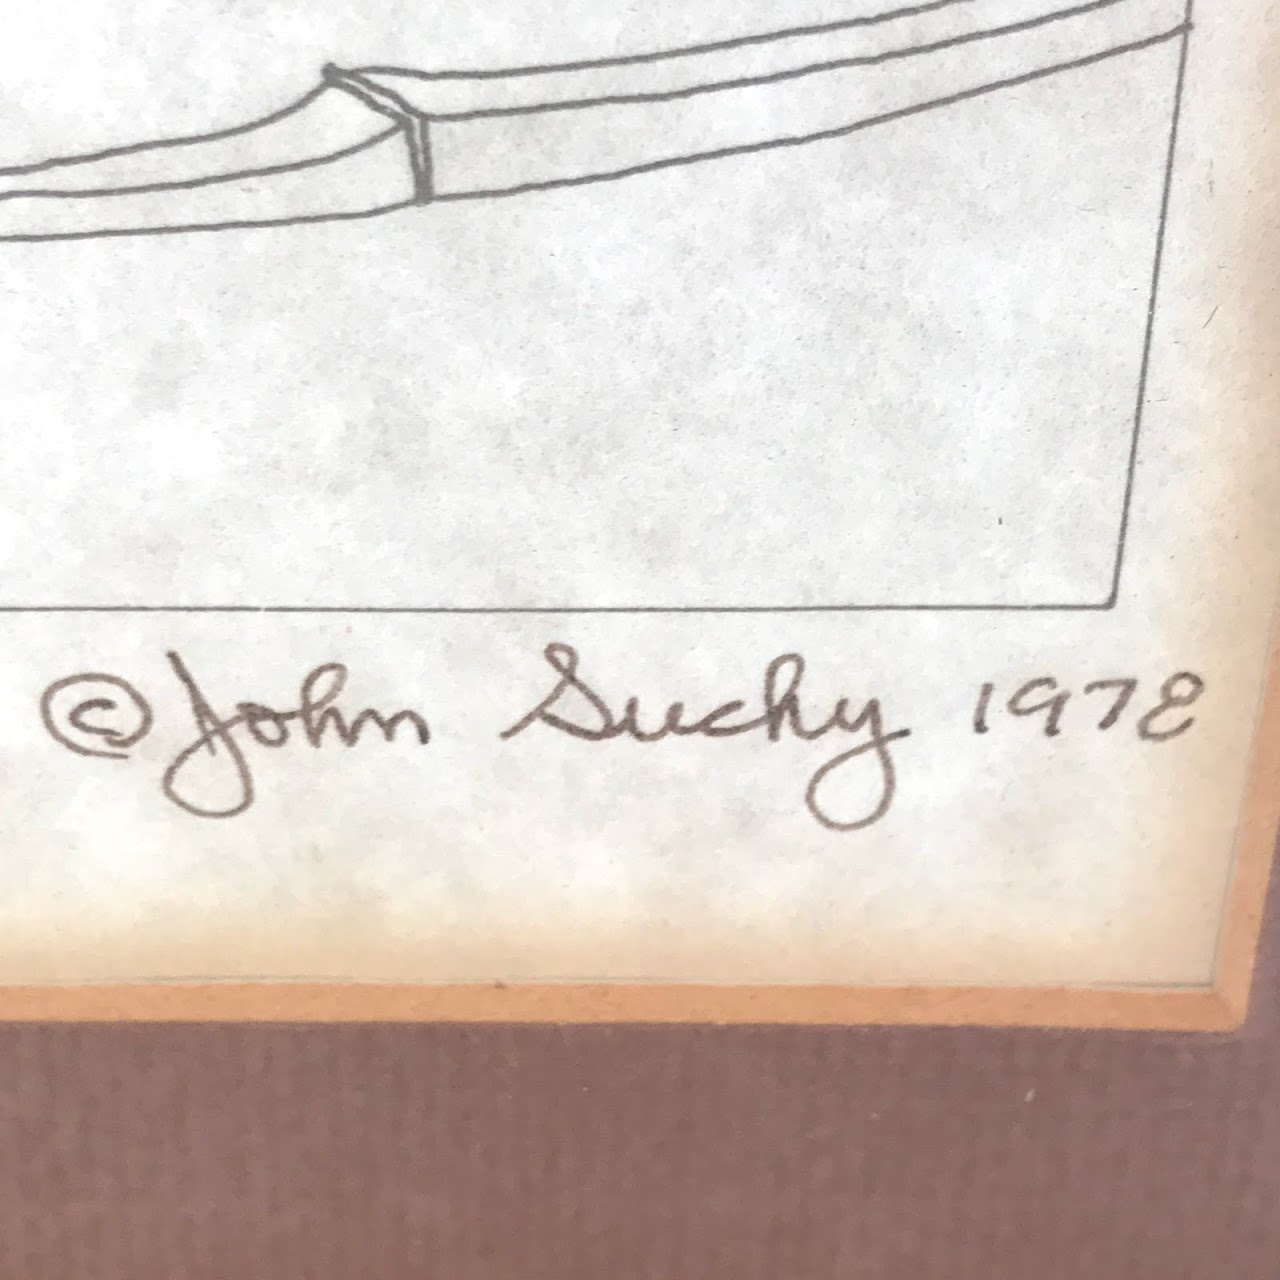 ©John Suchy 1978